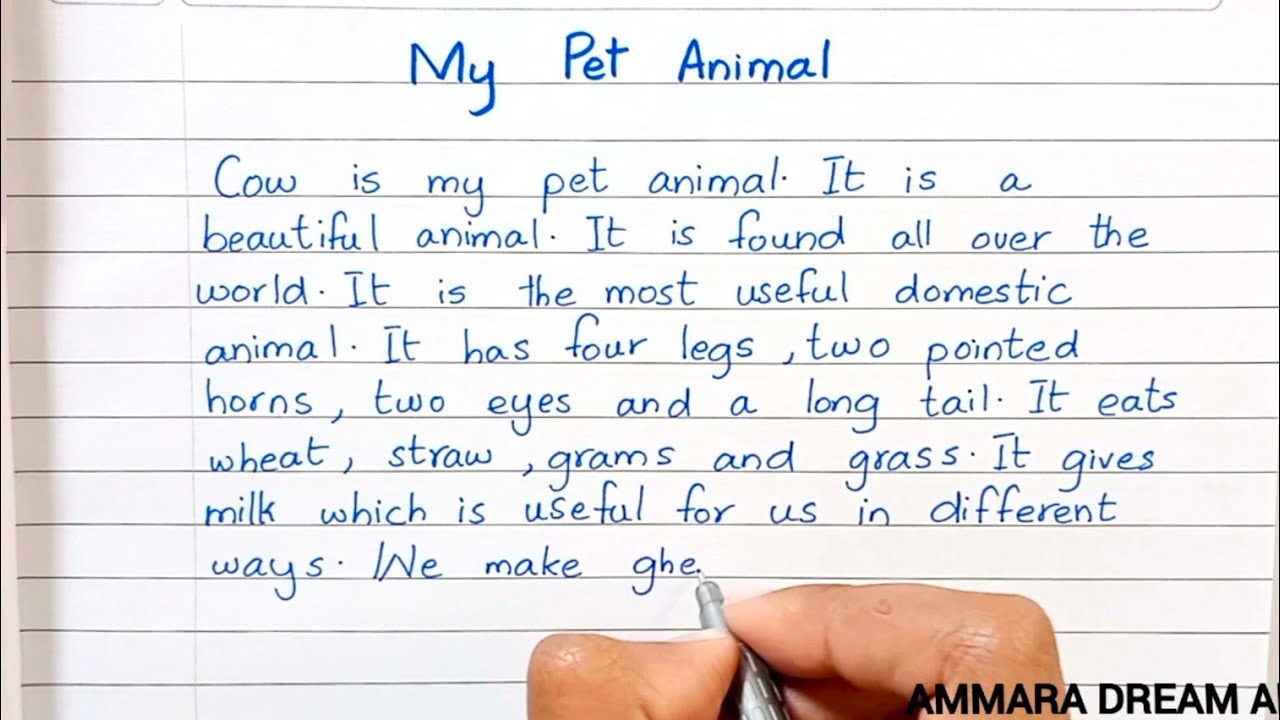 My Pet Animal
Cow is my pet animal. It is a
beautiful animal. It is found all over the
world. It is the most useful domestic
animal. It has four legs, two pointed
horns, two eyes and a long tail. It eats
wheat, straw, grams and grass. It gives
milk which is useful for us in different
ways. We make ghe
AMMARA DREAM A